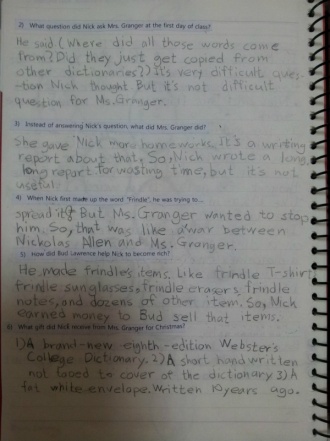 2) What question did Nick ask Mrs. Granger at the first day of class?
He said (Where did all those words come
from? Did they just get copied from
other dictionaries?) It's very difficult ques-
-tion Nick thought. But it's not difficult
question for Ms. Granger.
3) Instead of answering Nick's question, what did Mrs. Granger did?
She gave Nick more homework. It's a writing
report about that. So, Nick wrote a long,
long report for wasting time, but it's not
useful.
4) When Nick first made up the word "Frindle", he was trying to...
spread it. But Ms. Granger wanted to stop
him. So, that was like a war between
Nickolas Allen and Ms. Granger.
5) How did Bud Lawrence help Nick to become rich?
He made frindle's items. Like frindle T-shirt
frindle sunglasses, frindle erasers, frindle
notes, and dozens of other item. So, Nick
earned money to Bud sell that items.
6) What gift did Nick receive from Mrs. Granger for Christmas?
1) A brand-new eighth-edition Webster's
College Dictionary. 2) A short handwritten
not taped to cover of the dictionary 3) A
fat white envelope. Written 10 years ago.